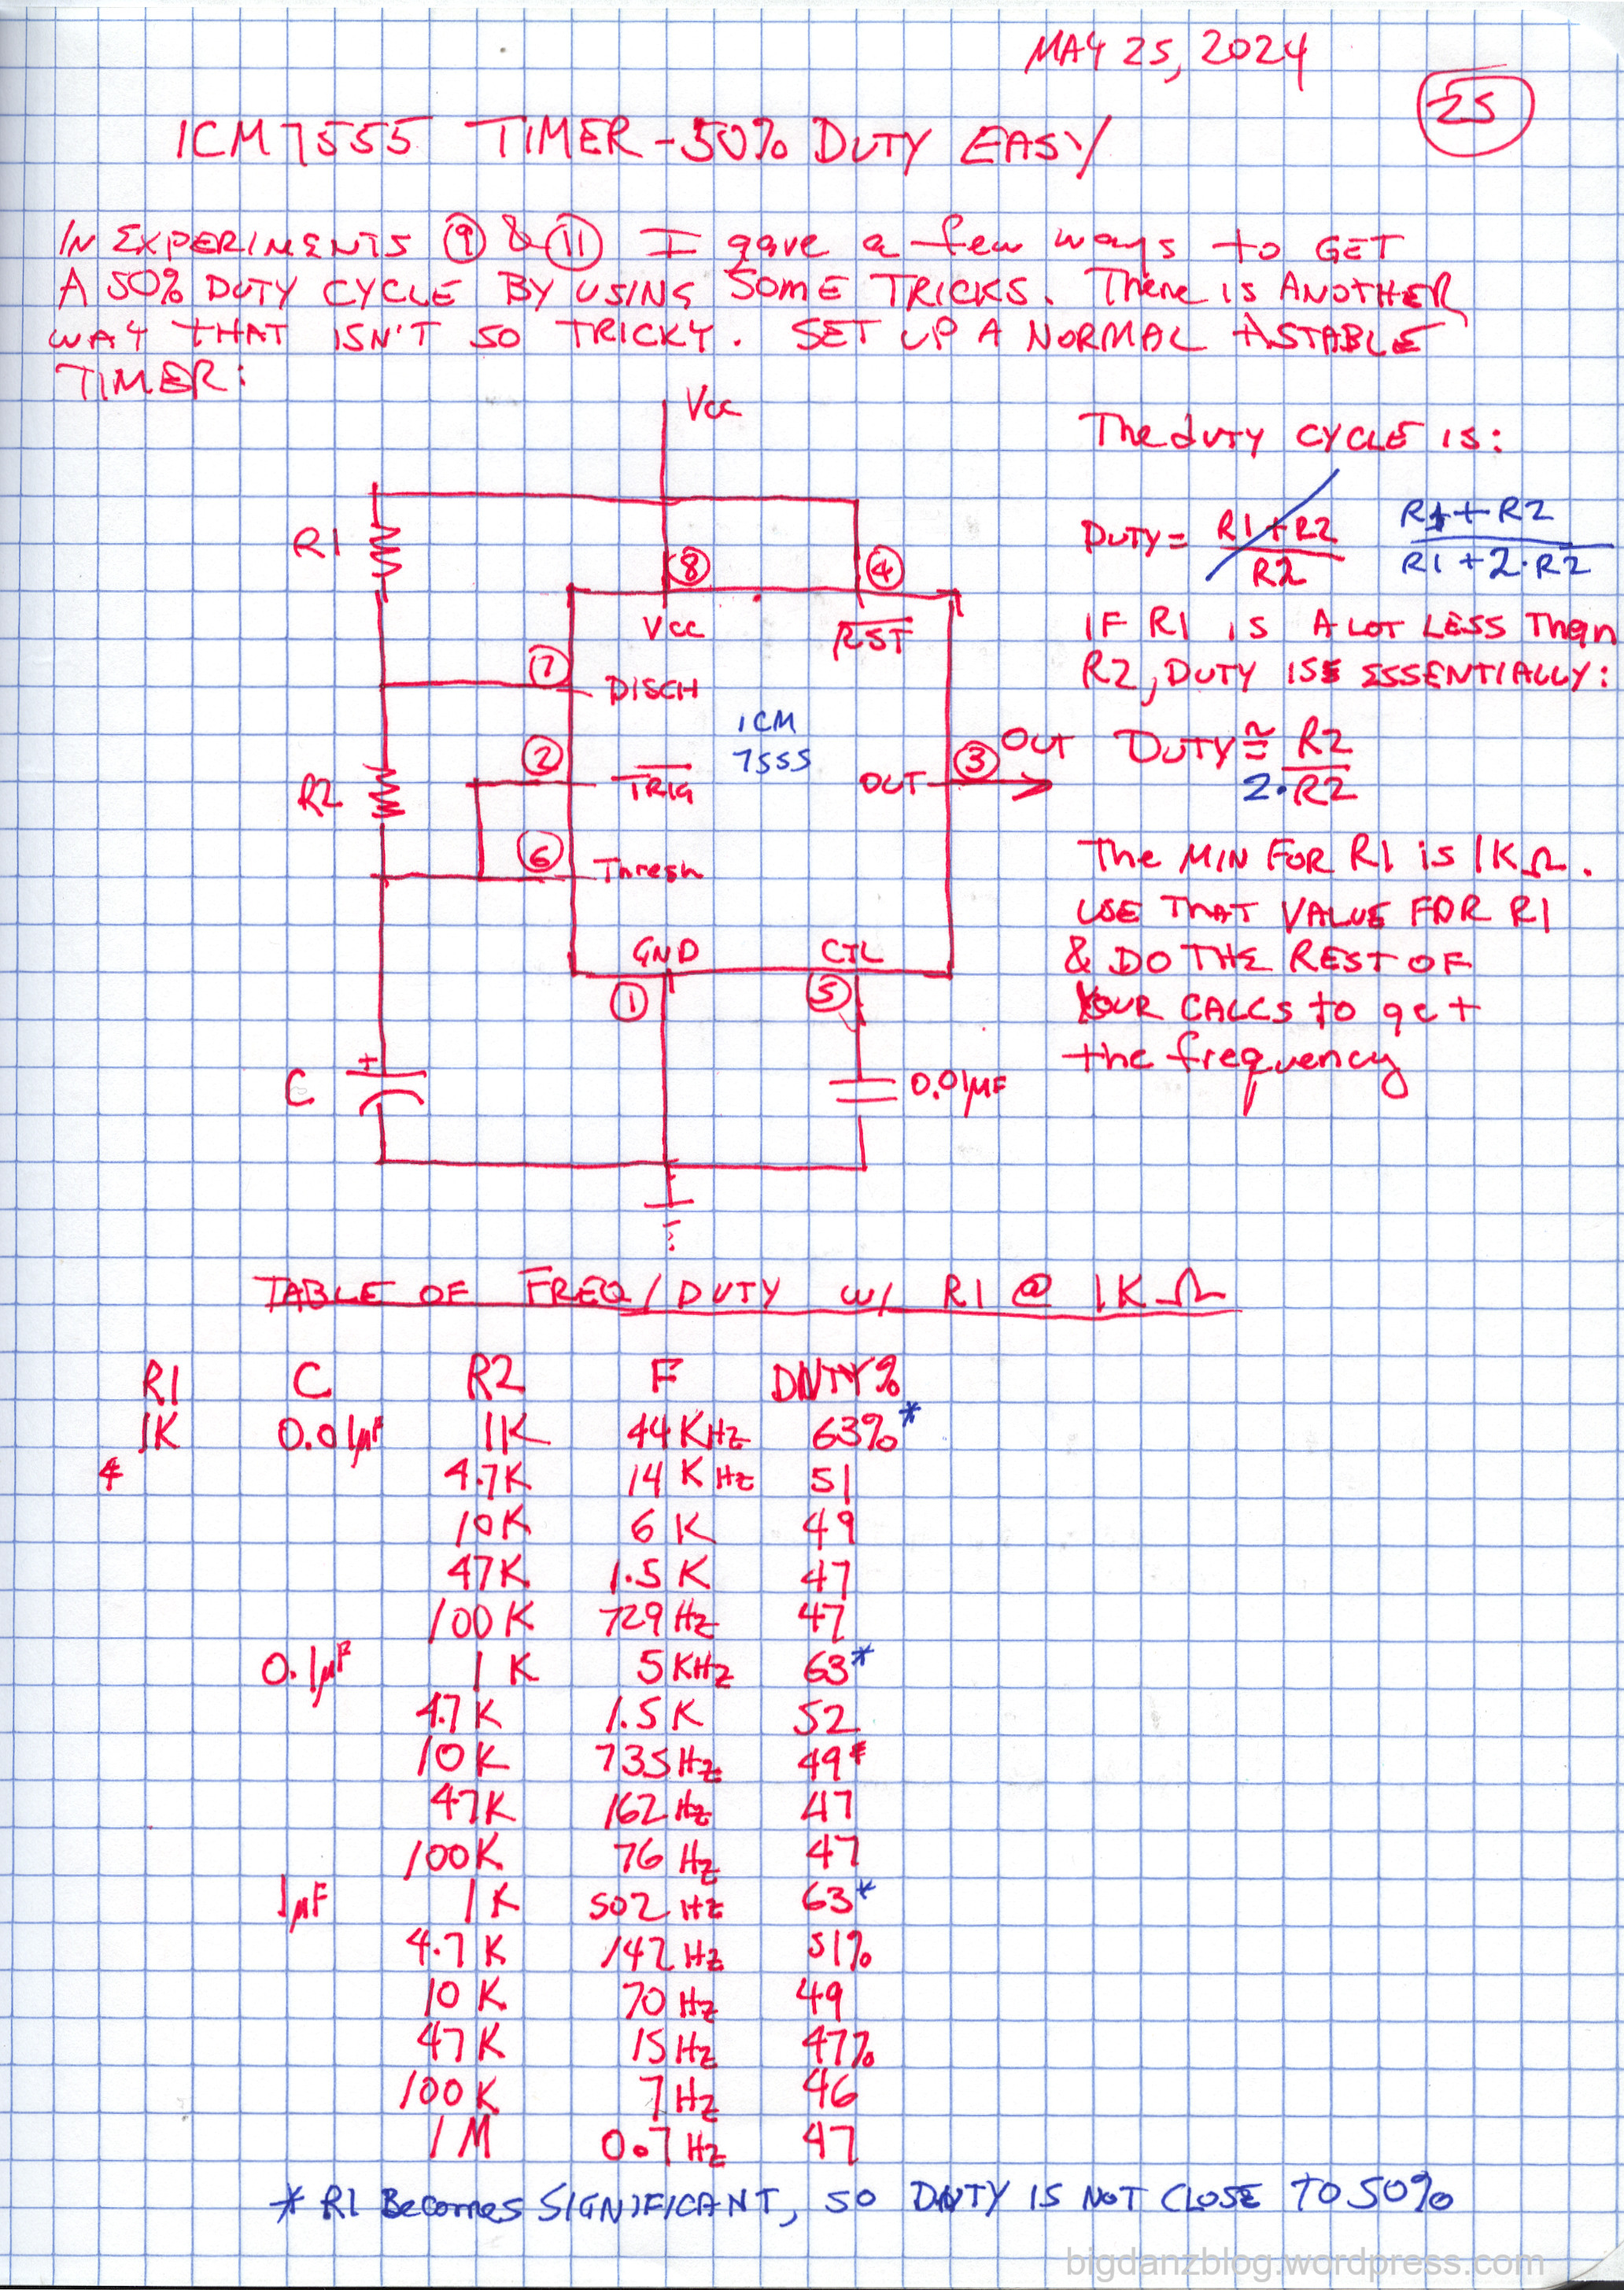 MAY 25, 2024
25
ICM7555 TIMER - 50% DUTY EASY
IN EXPERIMENTS 9 & 11 I gave a few ways to GET
A 50% DUTY CYCLE BY USING SOME TRICKS. There IS ANOTHER
WAY THAT ISN'T SO TRICKY. SET UP A NORMAL ASTABLE
TIMER:
Vcc
The duTY CYCLE IS:
R1
8
4
DUTY = R1+R2 / R2
R1+R2 / R1+2·R2
Vcc
RST
IF R1 IS A LOT LESS Than
R2, DUTY IS ESSENTIALLY:
7
DISCH
ICM
7555
2
TRIG
OUT
3
OUT
DUTY ≅ R2 / 2·R2
R2
6
Thresh
The MIN FOR R1 is 1KΩ.
USE THAT VALUE FOR R1
& DO THE REST OF
YOUR CALCS to get
the frequency
GND
CTL
1
5
+
C
0.01µF
TABLE OF FREQ/DUTY W/ R1 @ 1KΩ
R1 C R2 F DNTY%
1K 0.01µF 1K 44KHz 63%*
4.7K 14KHz 51
10K 6K 49
47K 1.5K 47
100K 729Hz 47
0.1µF 1K 5KHz 63*
4.7K 1.5K 52
10K 735Hz 49
47K 162Hz 47
100K 76Hz 47
1µF 1K 502Hz 63*
4.7K 142Hz 51%
10K 70Hz 49
47K 15Hz 47%
100K 7Hz 46
1M 0.7Hz 47
* R1 Becomes SIGNIFICANT, SO DNTY IS NOT CLOSE TO 50%
bigdanzblog.wordpress.com